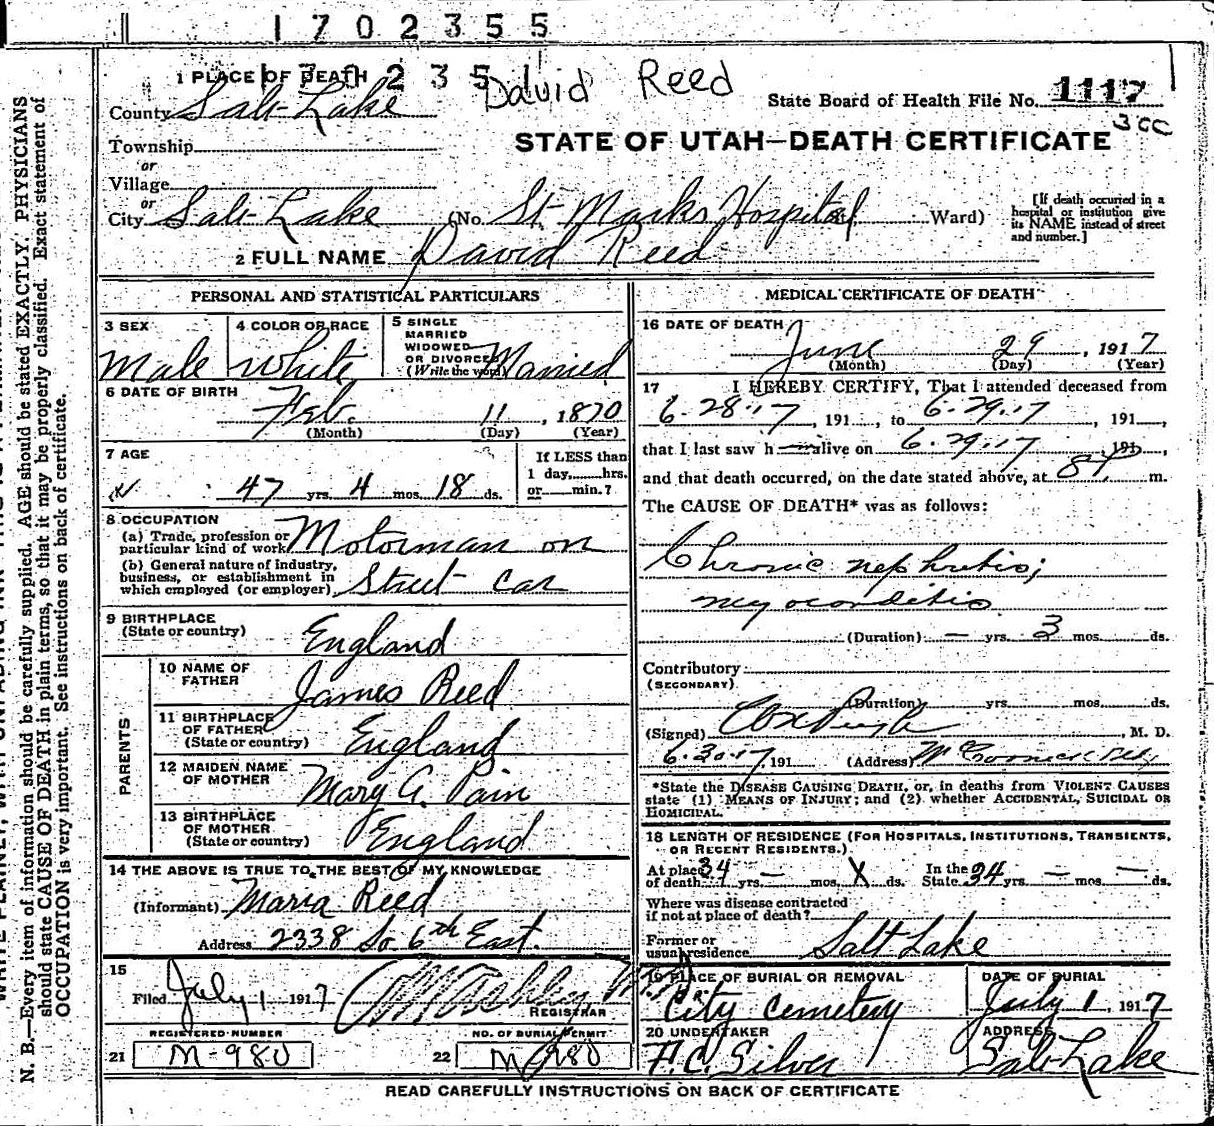 1702355
1 PLACE OF DEATH 235 David Reed
County Salt Lake
State Board of Health File No. 1117
3cc
Township
STATE OF UTAH—DEATH CERTIFICATE
or
Village
or
City Salt Lake (No. St Marks Hospital Ward)
[If death occurred in a
hospital or institution give
its NAME instead of street
and number.]
2 FULL NAME David Reed
PERSONAL AND STATISTICAL PARTICULARS
3 SEX
Male
4 COLOR OR RACE
White
5 SINGLE
MARRIED
WIDOWED
OR DIVORCED
(Write the word) Married
6 DATE OF BIRTH
Feb. 11, 1870
(Month) (Day) (Year)
7 AGE
47 yrs. 4 mos. 18 ds.
If LESS than
1 day, hrs.
or min.?
8 OCCUPATION
(a) Trade, profession or
particular kind of work Motorman on
(b) General nature of industry,
business, or establishment in
which employed (or employer) Street car
9 BIRTHPLACE
(State or country) England
PARENTS
10 NAME OF
FATHER James Reed
11 BIRTHPLACE
OF FATHER
(State or country) England
12 MAIDEN NAME
OF MOTHER Mary A. Pain
13 BIRTHPLACE
OF MOTHER
(State or country) England
14 THE ABOVE IS TRUE TO THE BEST OF MY KNOWLEDGE
(Informant) Maria Reed
Address 2338 So 6th East.
15
Filed July 1 1917
REGISTRAR
REGISTERED NUMBER
21 M-980
NO. OF BURIAL PERMIT
22 M 980
MEDICAL CERTIFICATE OF DEATH
16 DATE OF DEATH
June 29, 1917
(Month) (Day) (Year)
17 I HEREBY CERTIFY, That I attended deceased from
6-28-17, 191, to 6-29-17, 191,
that I last saw h alive on 6-29-17 191,
and that death occurred, on the date stated above, at 8 P m.
The CAUSE OF DEATH* was as follows:
Chronic nephritis;
myocarditis
(Duration) — yrs. 3 mos. ds.
Contributory
(SECONDARY)
(Duration) yrs. mos. ds.
(Signed) , M. D.
6-30-17, 191 (Address)
*State the DISEASE CAUSING DEATH, or, in deaths from VIOLENT CAUSES
state (1) MEANS OF INJURY; and (2) whether ACCIDENTAL, SUICIDAL OR
HOMICIDAL.
18 LENGTH OF RESIDENCE (FOR HOSPITALS, INSTITUTIONS, TRANSIENTS,
OR RECENT RESIDENTS.)
At place
of death 34 yrs. — mos. X ds. In the
State 34 yrs. — mos. — ds.
Where was disease contracted
if not at place of death?
Former or
usual residence Salt Lake
19 PLACE OF BURIAL OR REMOVAL
City Cemetery
DATE OF BURIAL
July 1, 1917
20 UNDERTAKER
F. C. Silver
ADDRESS
Salt Lake
READ CAREFULLY INSTRUCTIONS ON BACK OF CERTIFICATE
N. B.—Every item of information should be carefully supplied. AGE should be stated EXACTLY. PHYSICIANS
should state CAUSE OF DEATH in plain terms, so that it may be properly classified. Exact statement of
OCCUPATION is very important. See instructions on back of certificate.